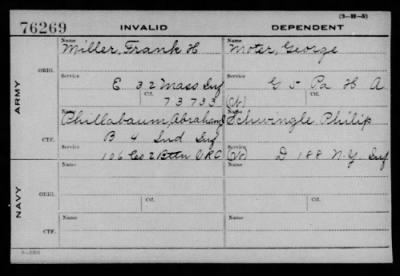 (3-88-8)
76269 INVALID DEPENDENT
Name Name
Miller, Frank H Moter, George
ORIG.
Service Service
E 32 Mass Inf G 5 Pa H A
Ctf. Ctf.
73733
ARMY
Name
Phillabaum, Abraham Schwingle, Philip
Service
B 4 Ind Inf
CTF.
106 Co 2 Battn VRC D 188 N.Y. Inf
NAVY
Name Name
ORIG.
Service Service
Ctf. Ctf.
Name Name
CTF.